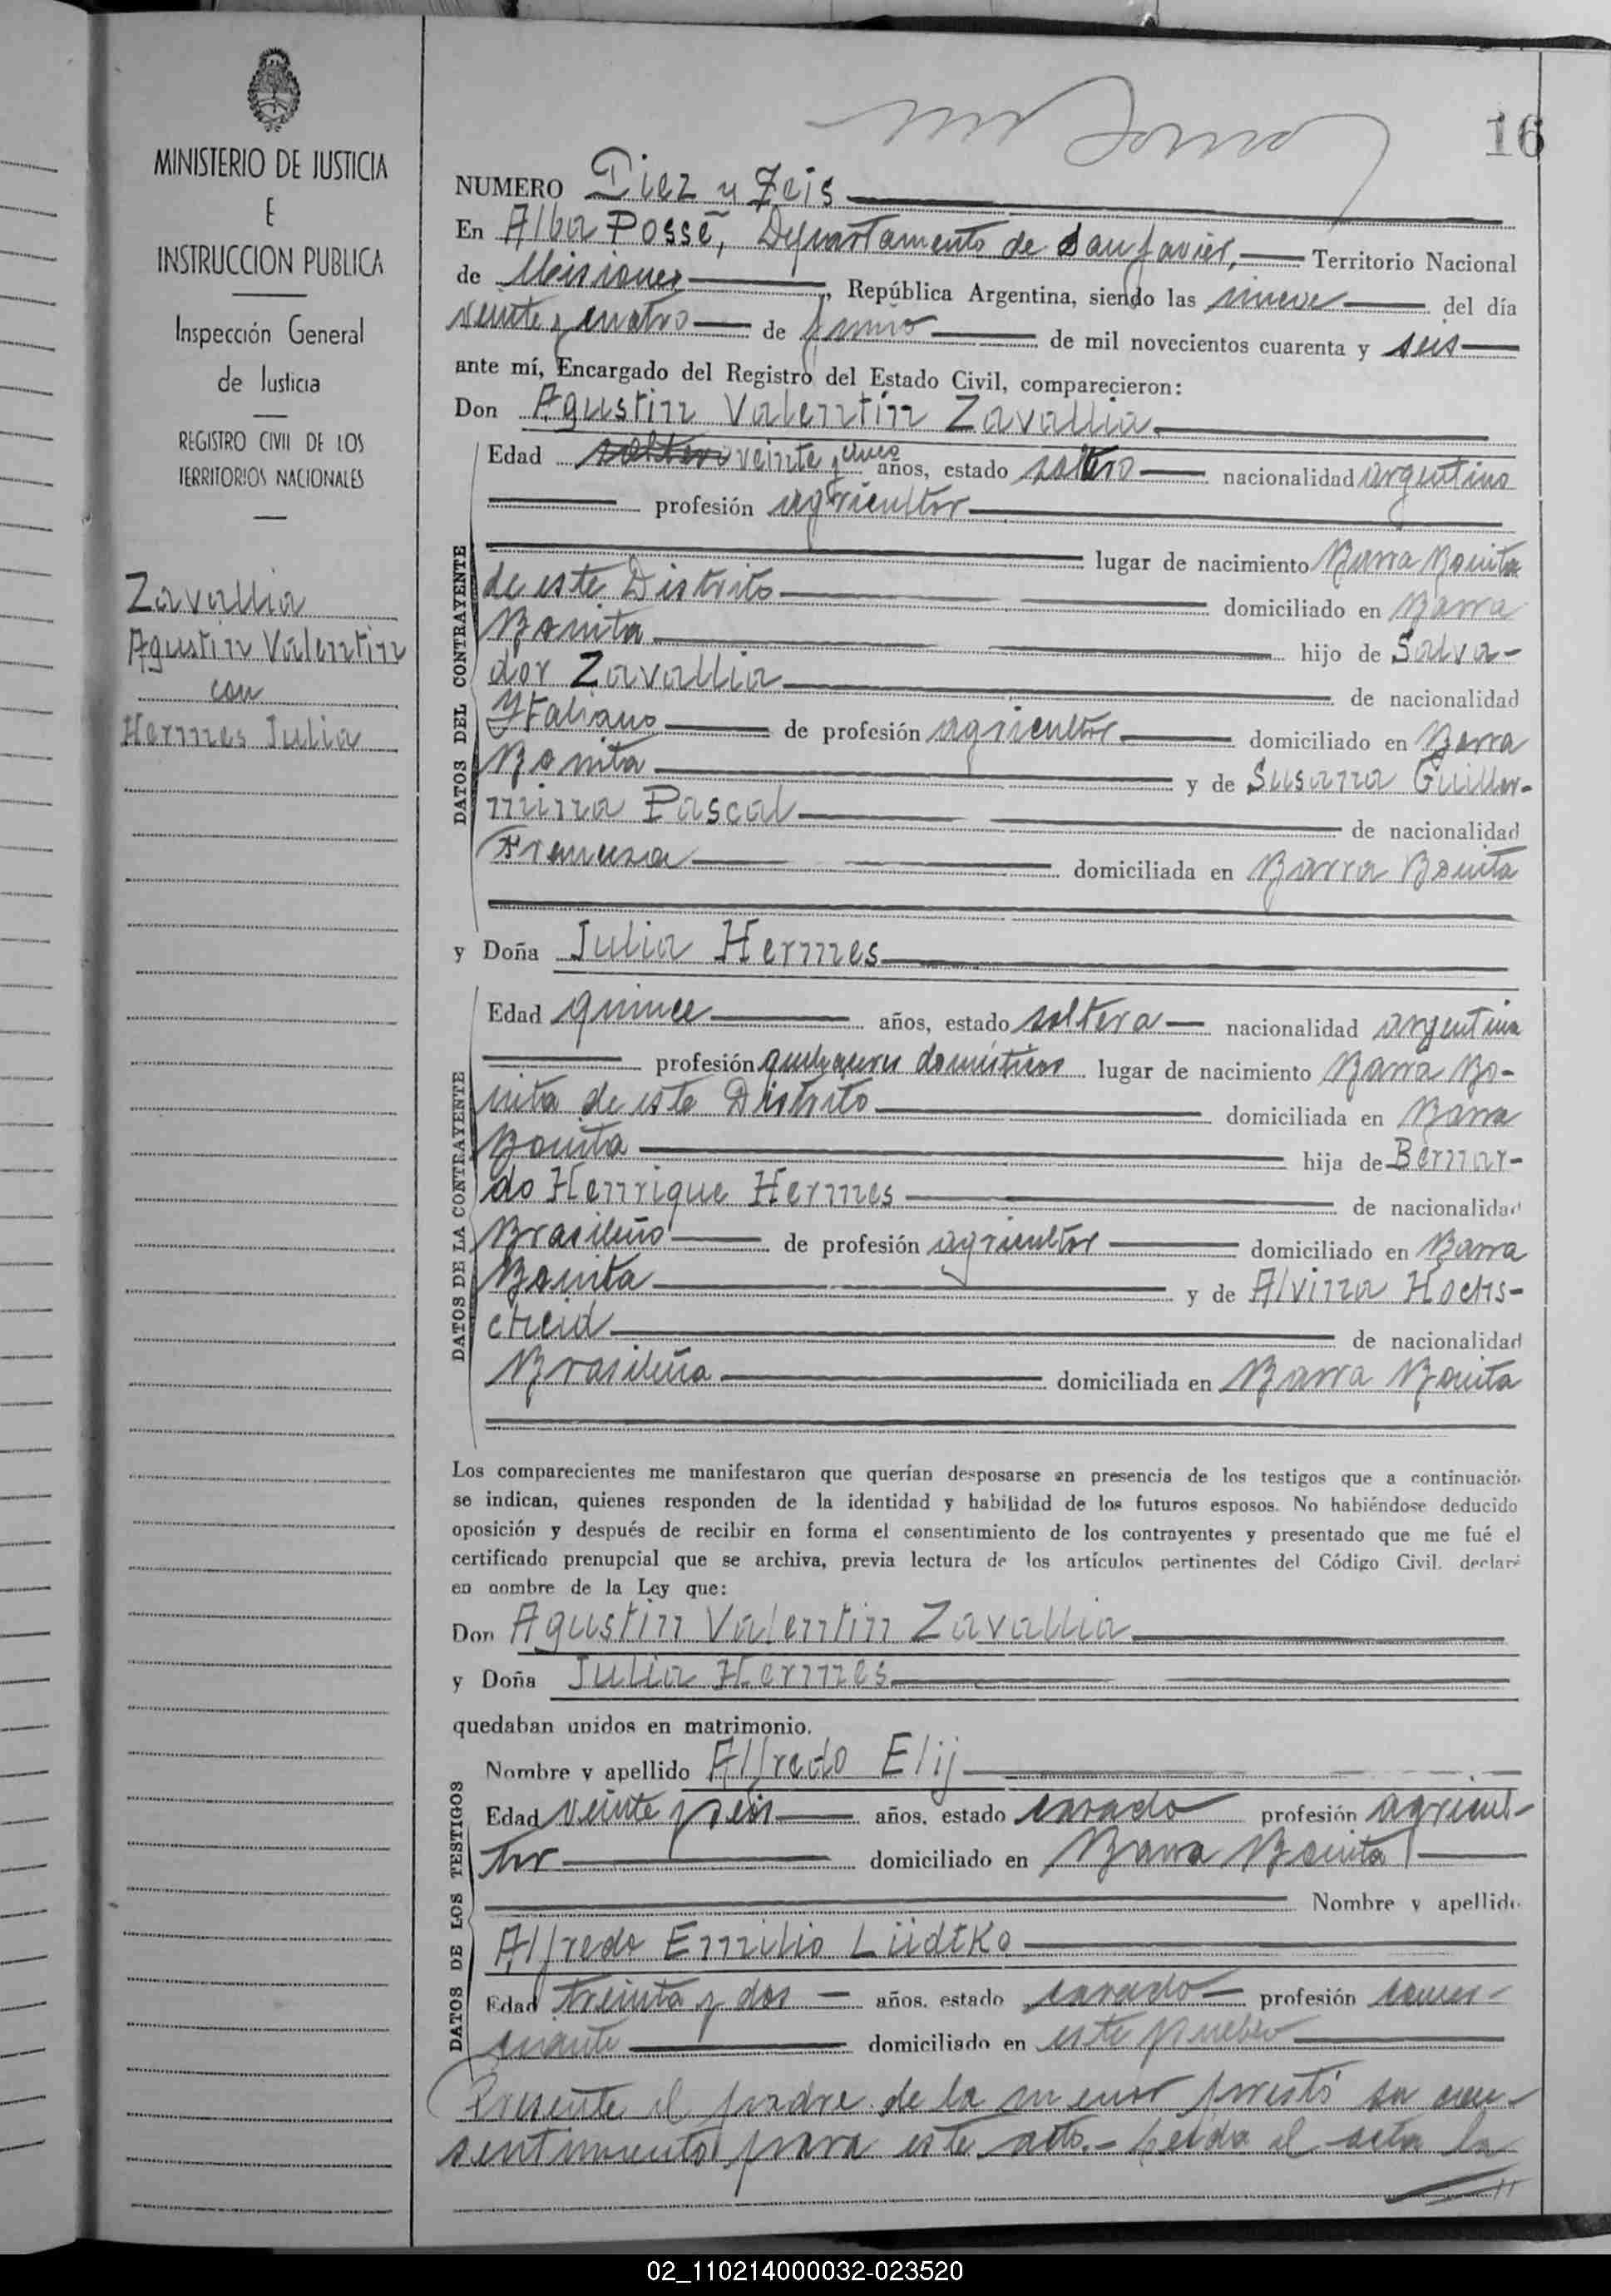 16
MINISTERIO DE JUSTICIA
E
INSTRUCCION PUBLICA
Inspección General
de Justicia
REGISTRO CIVIL DE LOS
TERRITORIOS NACIONALES
Zavallia
Agustin Valentin
con
Hermes Julia
NUMERO Diez y Seis
En Alba Posse, Departamento de San Javier, Territorio Nacional
de Misiones, República Argentina, siendo las nueve del día
veinte y cuatro de junio de mil novecientos cuarenta y seis
ante mí, Encargado del Registro del Estado Civil, comparecieron:
Don Agustin Valentín Zavallia
DATOS DEL CONTRAYENTE
Edad soltero veinte y cinco años, estado soltero nacionalidad argentino
profesión agricultor
lugar de nacimiento Barra Bonita
de este Distrito domiciliado en Barra
Bonita hijo de Salva-
dor Zavallia de nacionalidad
Italiano de profesión agricultor domiciliado en Barra
Bonita y de Susana Guiller-
mina Pascal de nacionalidad
Francesa domiciliada en Barra Bonita
y Doña Julia Hermes
DATOS DE LA CONTRAYENTE
Edad quince años, estado soltera nacionalidad argentina
profesión quehaceres domésticos lugar de nacimiento Barra Bo-
nita de este Distrito domiciliada en Barra
Bonita hija de Bernar-
do Henrique Hermes de nacionalidad
Brasileño de profesión agricultor domiciliado en Barra
Bonita y de Alvina Hochs-
cheid de nacionalidad
Brasileña domiciliada en Barra Bonita
Los comparecientes me manifestaron que querían desposarse en presencia de los testigos que a continuación
se indican, quienes responden de la identidad y habilidad de los futuros esposos. No habiéndose deducido
oposición y después de recibir en forma el consentimiento de los contrayentes y presentado que me fué el
certificado prenupcial que se archiva, previa lectura de los artículos pertinentes del Código Civil. declaré
en nombre de la Ley que:
Don Agustin Valentin Zavallia
y Doña Julia Hermes
quedaban unidos en matrimonio.
DATOS DE LOS TESTIGOS
Nombre y apellido Alfredo Elij
Edad veinte y seis años, estado casado profesión agricul-
tor domiciliado en Barra Bonita
Nombre y apellido
Alfredo Emilio Lüdtke
Edad treinta y dos años. estado casado profesión comer-
ciante domiciliado en este pueblo
Presente el padre de la menor prestó su con-
sentimiento para este acto.- Leída el acta la
02_110214000032-023520